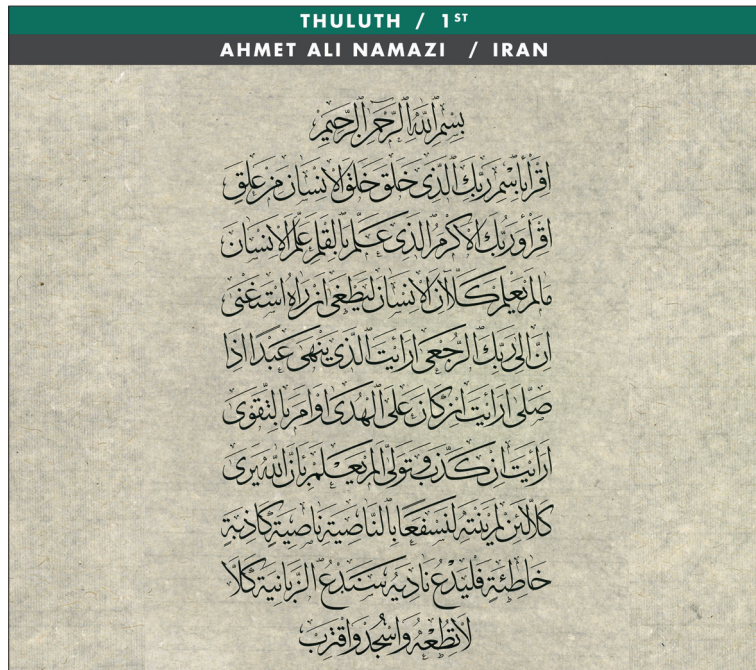 THULUTH / 1ST
AHMET ALI NAMAZI / IRAN
بسم الله الرحمن الرحيم
اقرأ باسم ربك الذى خلق خلق الانسان من علق
اقرأ وربك الاكرم الذى علم بالقلم علم الانسان
مالم يعلم كلا ان الانسان ليطغى ان راه استغنى
ان الى ربك الرجعى ارايت الذى ينهى عبدا اذا
صلى ارايت ان كان على الهدى او امر بالتقوى
ارايت ان كذب وتولى الم يعلم بان الله يرى
كلا لئن لم ينته لنسفعا بالناصية ناصية كاذبة
خاطئة فليدع ناديه سندع الزبانية كلا
لا تطعه واسجد واقترب